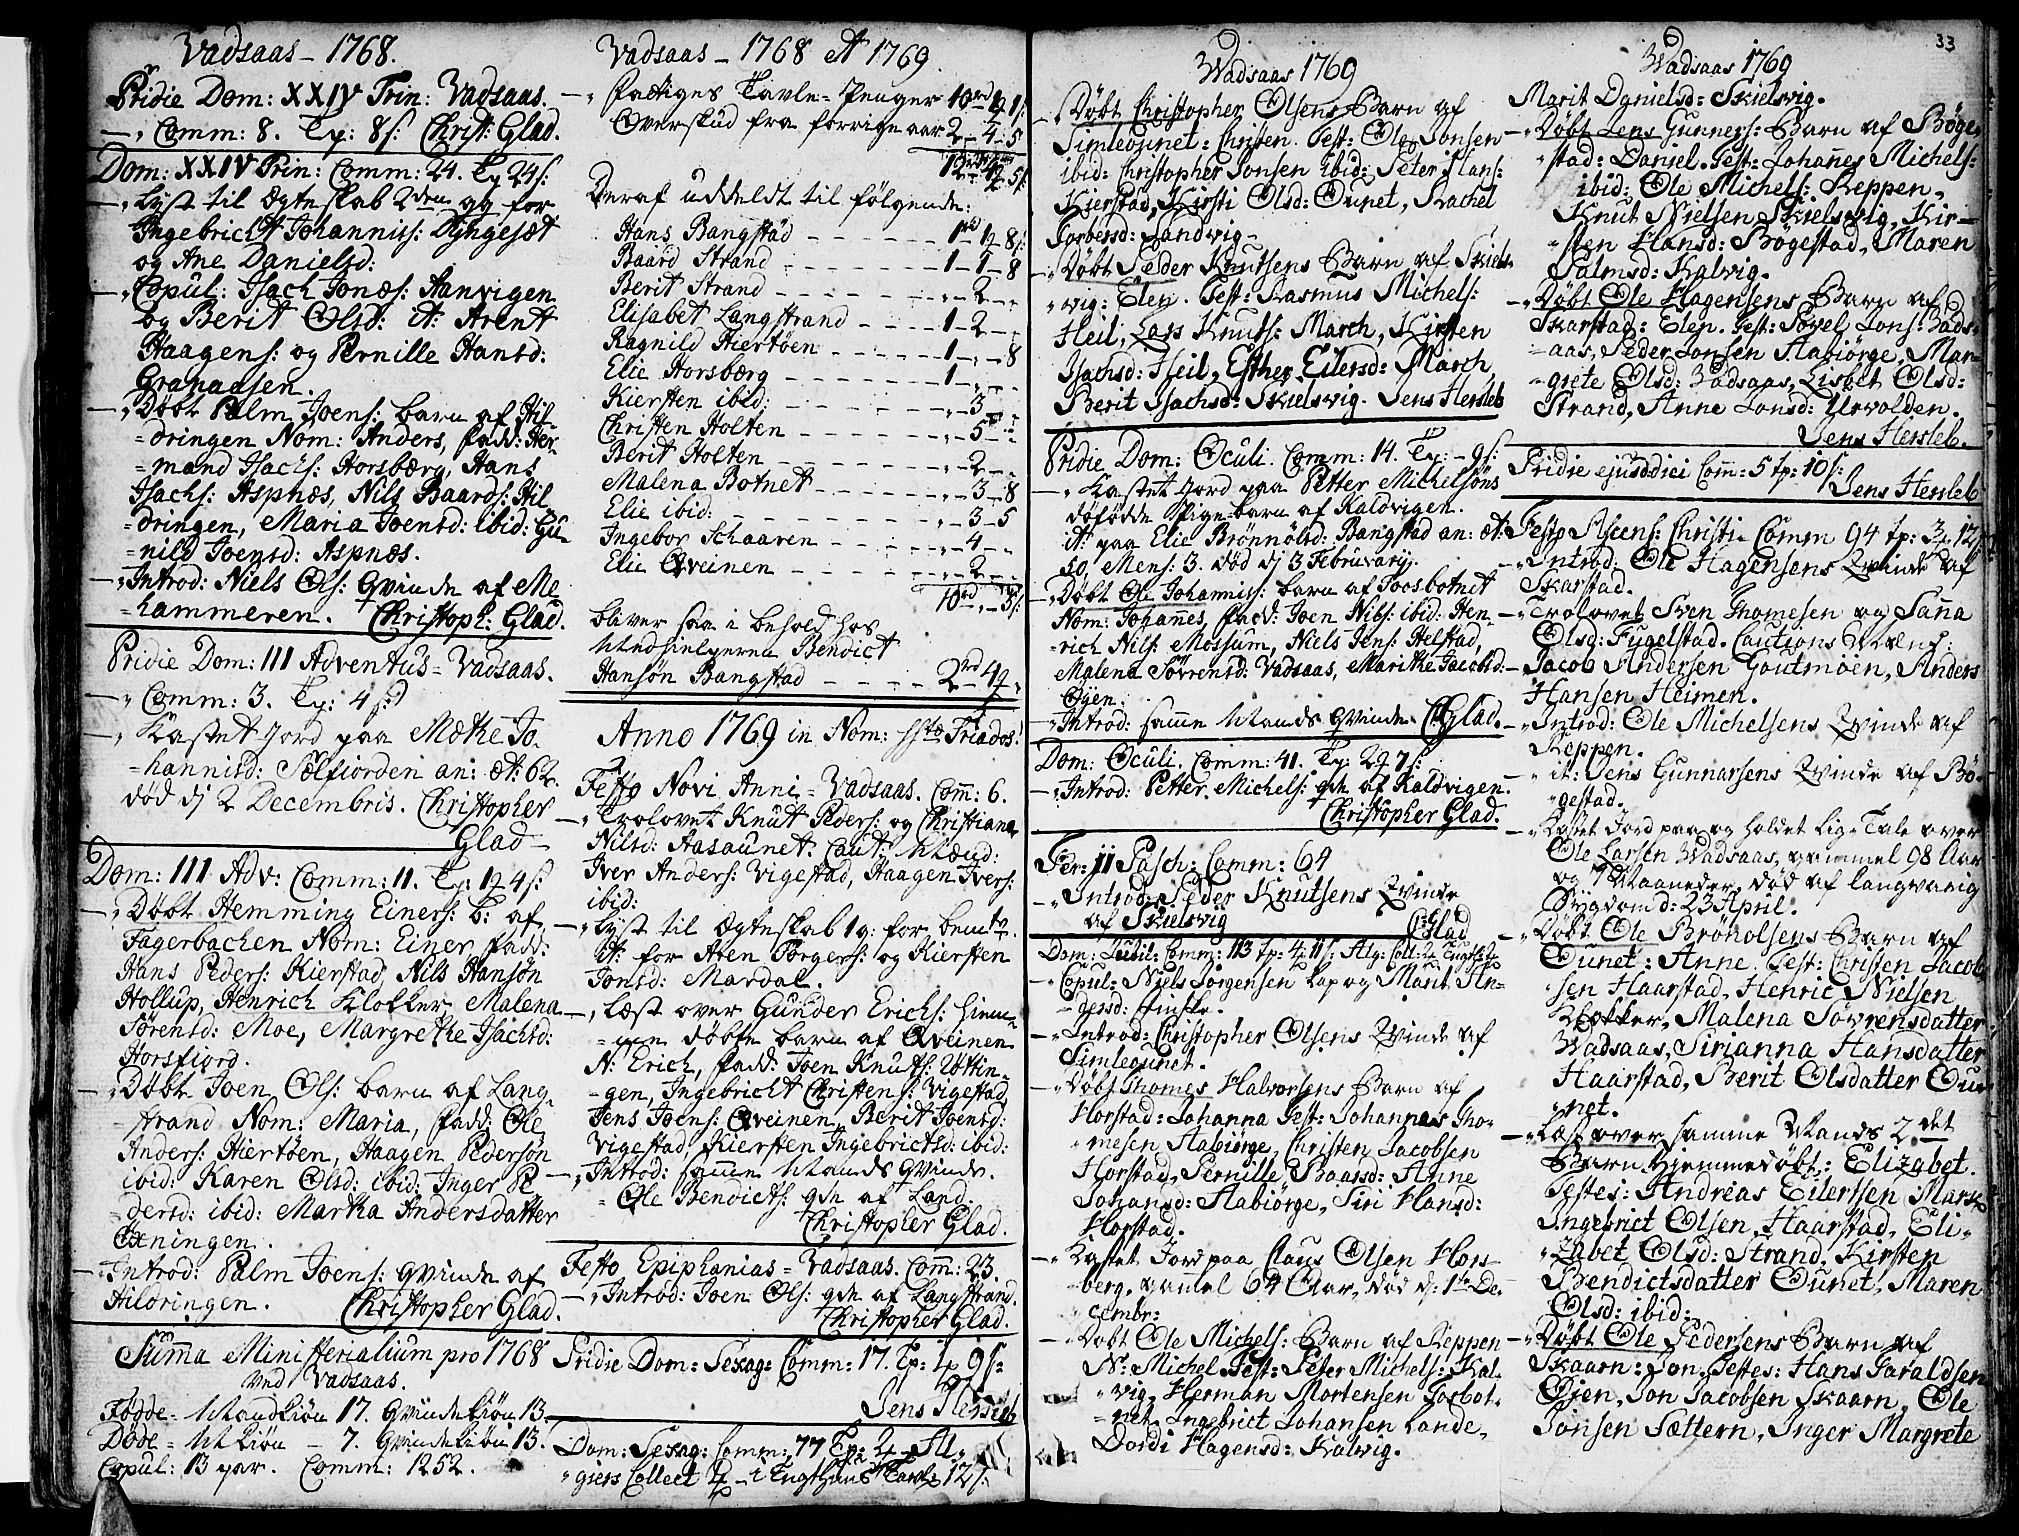 Vadsaas - 1768.
Pridie Dom: XXIV Trin: Vadsaas.
Comm: 8. Tp: 8 s: Christ: Glad.
Dom: XXIV Trin: Comm: 24. Tp 24 s:
Lyst til Ægteskab 2den gg for
Ingebricht Johannis: Dyngesæt
og Ane Danielsd:
Copul: Isach Jonæs: Aanvigen
og Berit Olsd: it: Arent
Haagens: og Pernille Hansd:
Granaasen.
Døbt Palm Joens: barn af Hil-
dringen Nom: Anders, fadd: Her-
mand Isachs: Horsbærg, Hans
Isachs: Aspnæs, Nils Baards: Hil
dringen, Maria Joensd: ibid: Gu-
nild Joensd: Aspnæs.
Introd: Niels Ols: qvinde af Me
hammeren. Christoph: Glad.
Pridie Dom: III Adventus = Vadsaas.
Comm: 3. Tp: 4 s:
Kastet Jord paa Mætke Jo-
hannisd: Sælfiorden an: æt: 62.
død dj 2 Decembris. Christopher
Glad
Dom: III Adv: Comm: 11. Tp: 1q 4 s:
Døbt Hemming Einers: b: af
Fagerbachen Nom: Einer fadd:
Hans Peders: Kierstad, Nils Hansøn
Hollup, Henrich Klokker, Malena
Sørensd: Moe, Margrethe Isachsd:
Horsfiord.
Døbt Joen Ols: barn af Lang-
strand Nom: Maria, fadd: Ole
Anders: Hiertøen, Haagen Pedersøn
ibid: Karen Olsd: ibid: Inger Pe
dersd: ibid: Martha Andersdatter
Oxningen.
Introd: Palm Joens: qvinde af
Hildringen. Christopher Glad.
Summa Ministerialium pro 1768
ved Vadsaas.
Fødde = Mandkiøn 17. Qvindekiøn 13.
Døde = M kiøn - 7. Qvindekiøn 13.
Copul: 13 par. Comm: 1252.
Vadsaas - 1768 et 1769
Fattiges Tavle = Penger 10rd 1q 1 s:
Overskud fra forrige aar 2 - 4 - 5
Deraf uddeelt til følgende:
Hans Bangstad - 1rd 1q 8 s:
Baard Strand - 1 - 1 - 8
Berit Strand - 2 -
Elisabet Langstrand - 1 - 2 -
Ragnild Hiertøen - 1 - 8
Elie Horsbærg - 1 -
Kiersten ibid: - 3
Christen Holten - 5
Berit Holten - 2 -
Malena Botnet - 3 - 8
Elie ibid: - 3 - 5
Ingebor Schaaren - 4 -
Elie Qveinen - 2 -
bliver saa i behold hos
Medhielperen Bendict
Hansøn Bangstad - 2rd 4q
Anno 1769 in Nom: SSto Triados!
Festo Novi Anni = Vadsaas. Com: 6.
Trolovet Knut Peders: og Christiana
Nilsd: Aasaunet. Caut: Mænd:
Iver Anders: Vigestad, Haagen Ivers:
ibid:
Lyst til Ægteskab 1 g: for bemte.
it: for Aren Børgers: og Kiersten
Jonsd: Mardal.
Læst over Gunder Erichs: hiem-
døbte barn af Qveinen
N: Erich, fadd: Joen Knuts: Ottin-
gen, Ingebricht Christens: Vigestad,
Jens Joens: Qveinen, Berit Joensd:
Vigestad, Kiersten Ingebrictsd: ibid:
Introd: samme Mands qvinde.
Ole Bendicts: qde af Land.
Christopher Glad.
Festo Epiphanias = Vadsaas. Com: 23.
Introd: Joen Ols: qde af Langstrand.
Christopher Glad.
Pridie Dom: Sexag: Comm: 17. Tp: 9 s:
Jens Hersleb
Dom: Sexag: Comm: 77 Tp: 2 - Al-
giers Collect
Wadsaas 1769
Døbt Christopher Olsens Barn af
Simleøjnet: Christen. Test: Ole Jonsen
ibid: Christopher Jonsen ibid: Peter Hans:
Kierstad, Kirsti Olsd: Øunet, Rachel
Torbersd: Sandvig.
Døbt Peder Knutsens Barn af Skiels-
vig: Elen. Test: Rasmus Michels:
Heil, Lars Knuts: March, Kirsten
Isachsd: Heil, Esther Eilersd: March,
Berit Isachsd: Skielsvig. Jens Hersleb
Pridie Dom: Oculi. Comm: 14. Tp: - 9 s:
Kastet Jord paa Petter Michelsøns
døfødde Pige-barn af Kaldvigen.
it: paa Elie Brønnølsd: Bangstad an: æt:
50, Mens: 3. død dj 3 Februarij.
Døbt Ole Johannis: barn af Toosbotnet
Nom: Johannes, fadd: Joen Nils: ibid: Hen-
rich Nils: Mossum, Niels Jens: Helstad,
Malena Sørensd: Vadsaas, Marithe Jacobsd:
Øyen.
Introd: samme Mands qvinde. C: Glad.
Dom: Oculi. Comm: 41. Tp: 2q 7 s:
Introd: Petter Michels: qde af Kaldvigen.
Christopher Glad.
Fer: II Pasch: Comm: 64
Introd: Peder Knutsens Qvinde
af Skielsvig Glad
Dom: Jubil: Comm: 113 tp: 4 11 s:
Copul: Niels Jørgensen Lap og Marit An-
dersd: Finske.
Introd: Christopher Olsens Qvinde af
Simleøunet.
Døbt Thomes Halvorsens Barn af
Horstad: Johanna Test: Johannes Tho-
mesen Aabiørge, Christen Jacobsen
Horstad, Pernille Baarsd: Anne
Johansd: Aabiørge, Siri Hansd:
Horstad.
Kastet Jord paa Claus Olsen Hors-
berg, gamel 64 Aar, død d: 1ste De-
cembr:
Døbt Ole Michels: Barn af Reppen
N: Michel Test: Peter Michels: Kal-
vig, Herman Mortensen Torbot-
net, Ingebrict Johansen Lande,
Dordi Hagensd: Kalvig.
33
Wadsaas 1769
Marit Danielsd: Skielsvig.
Døbt Jens Gunners: Barn af Bøge-
stad: Daniel. Test: Johannes Michels:
ibid: Ole Michels: Reppen,
Knut Nielsen Skielsvig, Kir-
sten Hansd: Bøgestad, Maren
Palmsd: Kalvig.
Døbt Ole Hagensens Barn af
Skarstad: Elen. Test: Povel Jons: Vads-
aas, Peder Jonsen Aabiørge, Mar-
grete Olsd: Vadsaas, Lisbet Olsd:
Strand, Anne Jonsd: Urvolden.
Jens Hersleb.
Pridie ejusd: diei Com: 5 tp: 10 s:
Jens Hersleb
Festo Ascens: Christi Comm 94 tp: 3 12
Introd: Ole Hagensens Qvinde af
Skarstad.
Trolovet Sven Thomesen og Sanna
Olsd: Fugelstad. Cautions Mænd:
Jacob Andersen Goutmoen, Anders
Hansen Heimen.
Introd: Ole Michelsens Qvinde af
Reppen.
it: Jens Gunnarsens Qvinde af Bø-
gestad.
Kastet Jord paa og holdet Lig-Tale over
Ole Larsen Wadsaas, gammel 98 Aar
og 7 Maaneder, død af langvarig
Sygdom d: 23 April.
Døbt Ole Brønolsens Barn af
Øunet: Anne. Test: Christen Jacob
sen Haarstad, Henric Nielsen
Klokker, Malena Søvrensdatter
Wadsaas, Sirianna Hansdatter
Haarstad, Berit Olsdatter Øu-
net.
Læst over samme Mands 2det
Barn hjemmedøbt: Elizabet.
Testes: Andreas Eilertsen Mark
Ingebrict Olsen, Haarstad, Eli-
zabet Olsd: Strand, Kirsten
Bendictsdatter Øunet, Maren
Olsd: ibid:
Døbt Ole Pedersens Barn af
Skaarn: Jon. Testes: Hans Haraldsen
Øien, Jon Jacobsen Skaarn, Ole
Jonsen Sættern, Inger Margrete